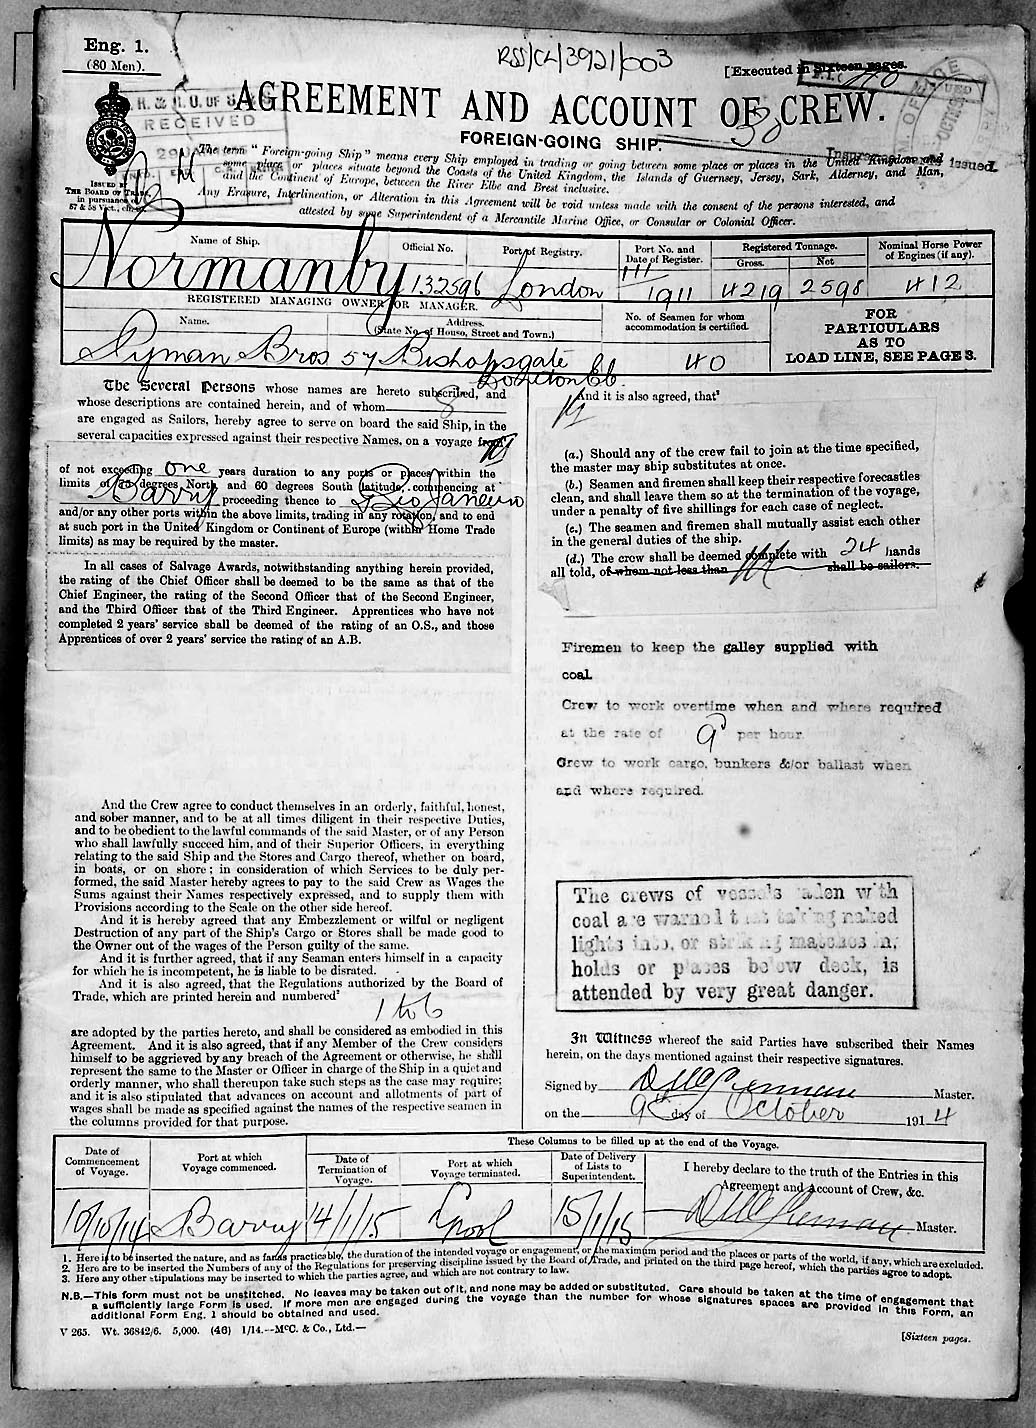 Eng. 1.
(80 Men).
RSS/CL/3921/003
[Executed in Sixteen pages.
AGREEMENT AND ACCOUNT OF CREW.
FOREIGN-GOING SHIP.
30
RECEIVED
ISSUED BY
THE BOARD OF TRADE,
in pursuance of
57 & 58 Vict., ch. 60.
The term "Foreign-going Ship" means every Ship employed in trading or going between some place or places in the United Kingdom and
some place or places situate beyond the Coasts of the United Kingdom, the Islands of Guernsey, Jersey, Sark, Alderney, and Man,
and the Continent of Europe, between the River Elbe and Brest inclusive.
Any Erasure, Interlineation, or Alteration in this Agreement will be void unless made with the consent of the persons interested, and
attested by some Superintendent of a Mercantile Marine Office, or Consular or Colonial Officer.
issued.
Name of Ship. Official No. Port of Registry. Port No. and Date of Register. Registered Tonnage. Gross. Net Nominal Horse Power of Engines (if any).
Normanby 132596 London 111 1911 4219 2598 412
REGISTERED MANAGING OWNER OR MANAGER.
Name. Address. (State No. of House, Street and Town.) No. of Seamen for whom accommodation is certified.
Pyman Bros 57 Bishopsgate London E.C. 40
FOR
PARTICULARS
AS TO
LOAD LINE, SEE PAGE 3.
The Several Persons whose names are hereto subscribed, and
whose descriptions are contained herein, and of whom 8
are engaged as Sailors, hereby agree to serve on board the said Ship, in the
several capacities expressed against their respective Names, on a voyage from
of not exceeding one years duration to any ports or places within the
limits of 75 degrees North and 60 degrees South latitude, commencing at
Barry proceeding thence to Rio Janeiro
and/or any other ports within the above limits, trading in any rotation, and to end
at such port in the United Kingdom or Continent of Europe (within Home Trade
limits) as may be required by the master.
In all cases of Salvage Awards, notwithstanding anything herein provided,
the rating of the Chief Officer shall be deemed to be the same as that of the
Chief Engineer, the rating of the Second Officer that of the Second Engineer,
and the Third Officer that of the Third Engineer. Apprentices who have not
completed 2 years' service shall be deemed of the rating of an O.S., and those
Apprentices of over 2 years' service the rating of an A.B.
And the Crew agree to conduct themselves in an orderly, faithful, honest,
and sober manner, and to be at all times diligent in their respective Duties,
and to be obedient to the lawful commands of the said Master, or of any Person
who shall lawfully succeed him, and of their Superior Officers, in everything
relating to the said Ship and the Stores and Cargo thereof, whether on board,
in boats, or on shore: in consideration of which Services to be duly per-
formed, the said Master hereby agrees to pay to the said Crew as Wages the
Sums against their Names respectively expressed, and to supply them with
Provisions according to the Scale on the other side hereof.
And it is hereby agreed that any Embezzlement or wilful or negligent
Destruction of any part of the Ship's Cargo or Stores shall be made good to
the Owner out of the wages of the Person guilty of the same.
And it is further agreed, that if any Seaman enters himself in a capacity
for which he is incompetent, he is liable to be disrated.
And it is also agreed, that the Regulations authorized by the Board of
Trade, which are printed herein and numbered²
1 to 6
are adopted by the parties hereto, and shall be considered as embodied in this
Agreement. And it is also agreed, that if any Member of the Crew considers
himself to be aggrieved by any breach of the Agreement or otherwise, he shall
represent the same to the Master or Officer in charge of the Ship in a quiet and
orderly manner, who shall thereupon take such steps as the case may require;
and it is also stipulated that advances on account and allotments of part of
wages shall be made as specified against the names of the respective seamen in
the columns provided for that purpose.
And it is also agreed, that³
(a.) Should any of the crew fail to join at the time specified,
the master may ship substitutes at once.
(b.) Seamen and firemen shall keep their respective forecastles
clean, and shall leave them so at the termination of the voyage,
under a penalty of five shillings for each case of neglect.
(c.) The seamen and firemen shall mutually assist each other
in the general duties of the ship.
(d.) The crew shall be deemed complete with 24 hands
all told, of whom not less than shall be sailors.
Firemen to keep the galley supplied with
coal
Crew to work overtime when and where required
at the rate of 9d per hour.
Crew to work cargo, bunkers &/or ballast when
and where required.
The crews of vessels laden with
coal are warned that taking naked
lights into, or striking matches in,
holds or places below deck, is
attended by very great danger.
In Witness whereof the said Parties have subscribed their Names
herein, on the days mentioned against their respective signatures.
Signed by Master.
on the 9th day of October 1914
These Columns to be filled up at the end of the Voyage.
Date of Commencement of Voyage. Port at which Voyage commenced. Date of Termination of Voyage. Port at which Voyage terminated. Date of Delivery of Lists to Superintendent.
I hereby declare to the truth of the Entries in this
Agreement and Account of Crew, &c.
10/10/14 Barry 14/1/15 Lpool 15/1/15 Master.
1. Here is to be inserted the nature, and as far as practicable, the duration of the intended voyage or engagement, or the maximum period and the places or parts of the world, if any, which are excluded.
2. Here are to be inserted the Numbers of any of the Regulations for preserving discipline issued by the Board of Trade, and printed on the third page hereof, which the parties agree to adopt.
3. Here any other stipulations may be inserted to which the parties agree, and which are not contrary to law.
N.B.—This form must not be unstitched. No leaves may be taken out of it, and none may be added or substituted. Care should be taken at the time of engagement that
a sufficiently large Form is used. If more men are engaged during the voyage than the number for whose signatures spaces are provided in this Form, an
additional Form Eng. 1 should be obtained and used.
V 265. Wt. 36842/6. 5,000. (46) 1/14.—McC. & Co., Ltd.—
[Sixteen pages.